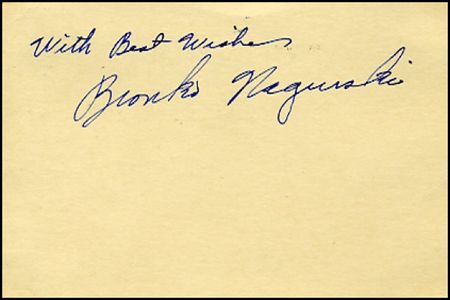 With Best Wishes
Bronko Nagurski